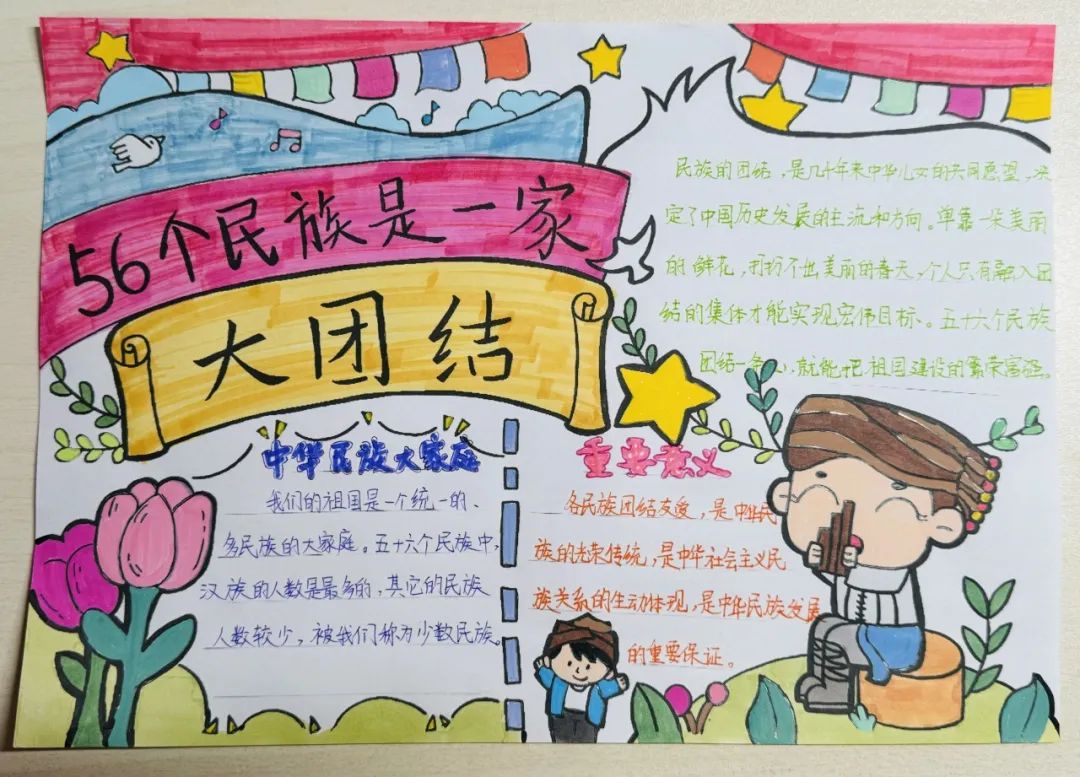 56个民族是一家
大团结
民族的团结，是几十年来中华儿女的共同愿望，决
定了中国历史发展的主流和方向。单靠一朵美丽
的鲜花，打扮不出美丽的春天，个人只有融入团
结的集体才能实现宏伟目标。五十六个民族
团结一条心，就能把祖国建设的繁荣富强。
中华民族大家庭
我们的祖国是一个统一的、
多民族的大家庭。五十六个民族中，
汉族的人数是最多的，其它的民族
人数较少，被我们称为少数民族。
重要意义
各民族团结友爱，是中华民
族的光荣传统，是中华社会主义民
族关系的生动体现，是中华民族发展
的重要保证。